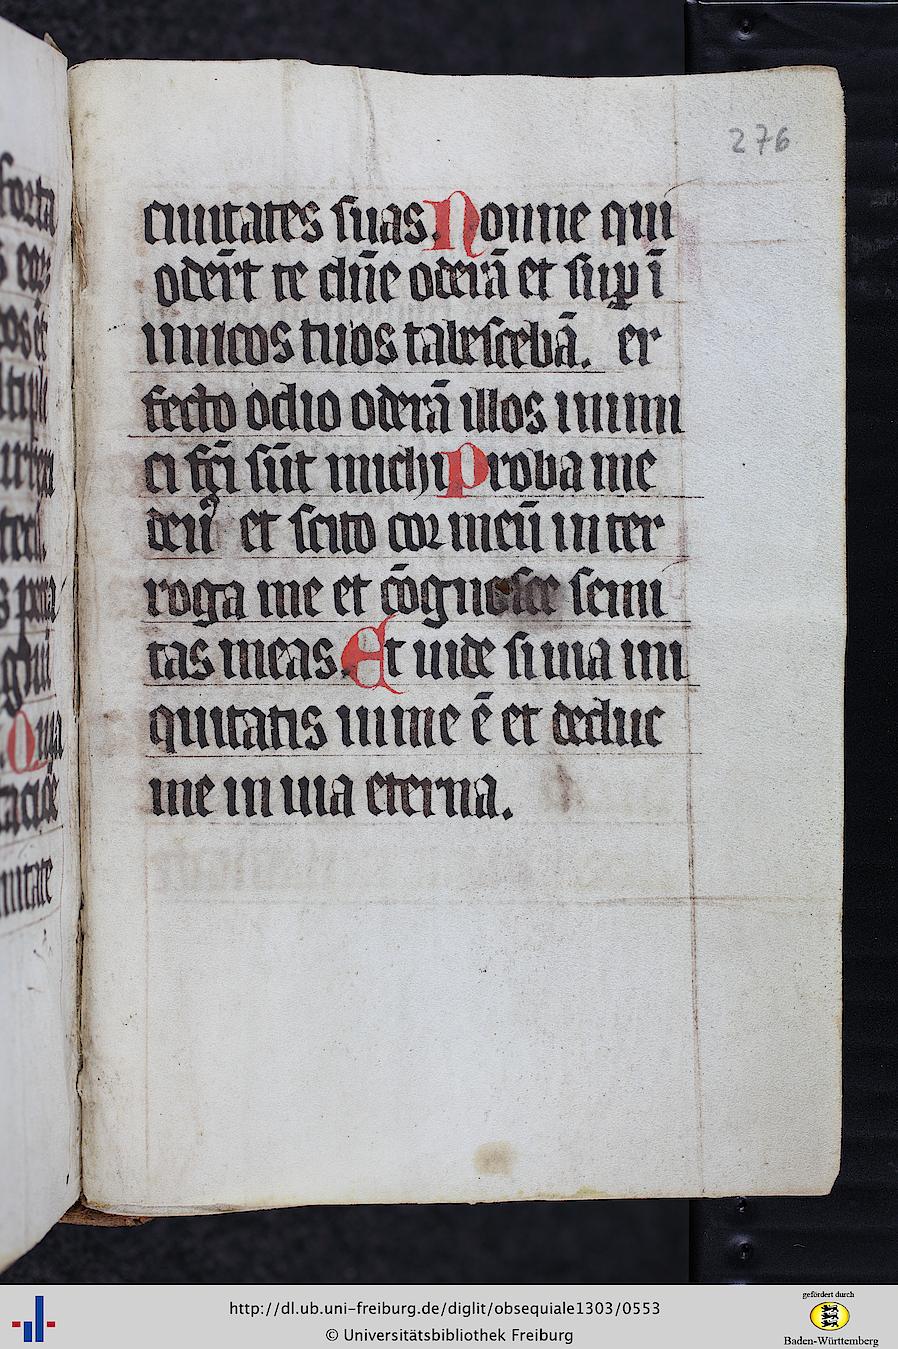 276
ciuitates suas. Nonne qui
odert̄ te dn̄e oderā et suꝑ ī
imicos tuos tabescebā. er
fecto odio oderā illos inimi
ci fc̄i sūt michi Proba me
deus et scito cor meū inter
roga me et cōgnosce semi
tas meas. Et uide si uia ini
quitatis in me ē et deduc
me in uia eterna.
http://dl.ub.uni-freiburg.de/diglit/obsequiale1303/0553
© Universitätsbibliothek Freiburg
gefördert durch
Baden-Württemberg